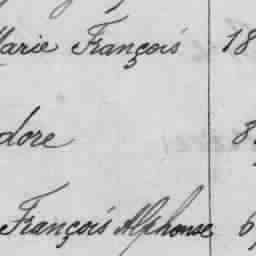 Marie François 18
dore 8
François Alphonse 6